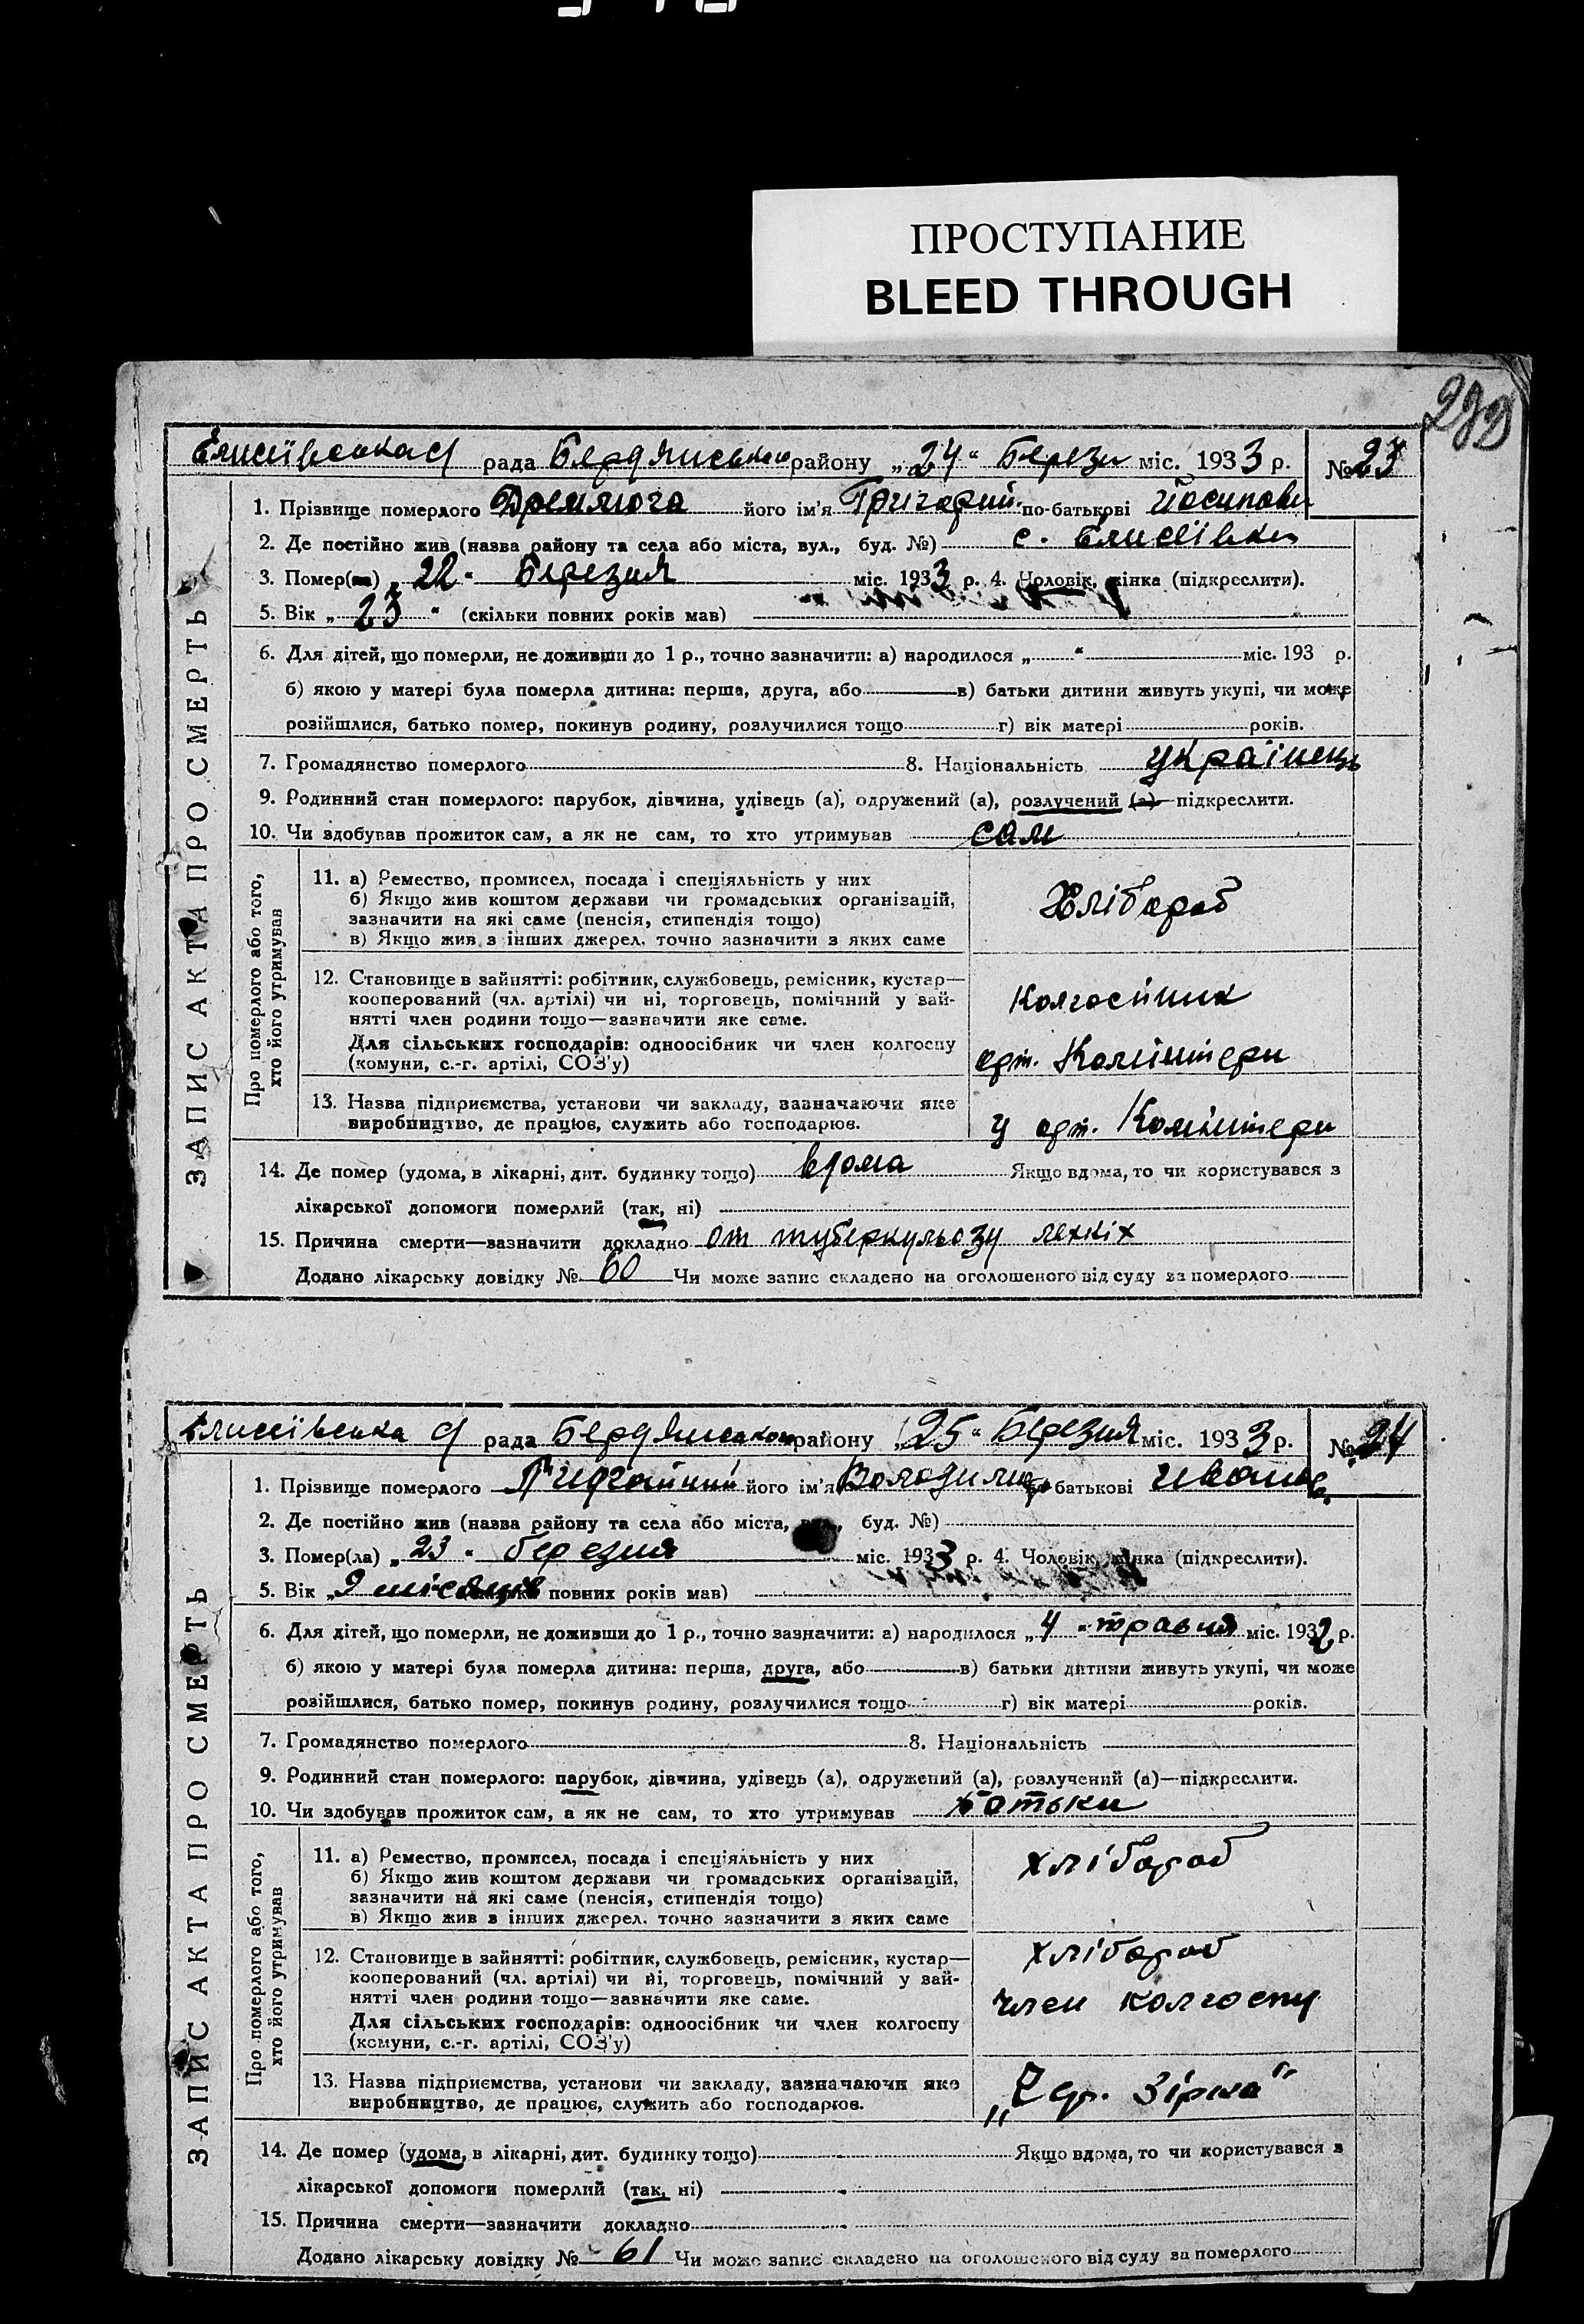 ПРОСТУПАНИЕ
BLEED THROUGH
Єлисіївська рада Бердянського району „24“ Березня міс. 1933 р. № 23
1. Прізвище померлого Дремлюга його ім'я Григорий по-батькові Йосипови
2. Де постійно жив (назва району та села або міста, вул., буд. №) с. Єлисіївки
3. Помер(ла) „22“ Березня міс. 1933 р. 4. Чоловік, жінка (підкреслити).
5. Вік „23“ (скільки повних років мав)
6. Для дітей, що померли, не доживши до 1 р., точно зазначити: а) народилося „ “ міс. 193 р.
б) якою у матері була померла дитина: перша, друга, або в) батьки дитини живуть укупі, чи може
розійшлися, батько помер, покинув родину, розлучилися тощо г) вік матері років.
7. Громадянство померлого 8. Національність українець
9. Родинний стан померлого: парубок, дівчина, удівець (а), одружений (а), розлучений (а)—підкреслити.
10. Чи здобував прожиток сам, а як не сам, то хто утримував сам
ЗАПИС АКТА ПРО СМЕРТЬ
Про померлого або того,
хто його утримував
11. а) Ремество, промисел, посада і спеціяльність у них
б) Якщо жив коштом держави чи громадських організацій,
зазначити на які саме (пенсія, стипендія тощо)
в) Якщо жив з інших джерел. точно зазначити з яких саме
Хлібороб
12. Становище в зайнятті: робітник, службовець, ремісник, кустар—
кооперований (чл. артілі) чи ні, торговець, помічний у зай-
нятті член родини тощо—зазначити яке саме.
Для сільських господарів: одноосібник чи член колгоспу
(комуни, с.-г. артілі, СОЗ'у)
Колгоспник
арт. Комінтерн
13. Назва підприємства, установи чи закладу, зазначаючи яке
виробництво, де працює, служить або господарює.
у арт. Комінтерн
14. Де помер (удома, в лікарні, дит. будинку тощо) вдома Якщо вдома, то чи користувався з
лікарської допомоги померлий (так, ні)
15. Причина смерти—зазначити докладно от туберкульозу легкіх
Додано лікарську довідку № 60 Чи може запис складено на оголошеного від суду за померлого
Єлисіївська рада Бердянського району „25“ Березня міс. 1933 р. № 24
1. Прізвище померлого його ім'я Володимир по батькові Иванов.
2. Де постійно жив (назва району та села або міста, буд. №)
3. Помер(ла) „23“ березня міс. 1933 р. 4. Чоловік, жінка (підкреслити).
5. Вік „9 місяців повних років мав)
6. Для дітей, що померли, не доживши до 1 р., точно зазначити: а) народилося „4“ травня міс. 1932 р.
б) якою у матері була померла дитина: перша, друга, або в) батьки дитини живуть укупі, чи може
розійшлися, батько помер, покинув родину, розлучилися тощо г) вік матері років.
7. Громадянство померлого 8. Національність
9. Родинний стан померлого: парубок, дівчина, удівець (а), одружений (а), розлучений (а)—підкреслити.
10. Чи здобував прожиток сам, а як не сам, то хто утримував батьки
ЗАПИС АКТА ПРО СМЕРТЬ
Про померлого або того,
хто його утримував
11. а) Ремество, промисел, посада і спеціяльність у них
б) Якщо жив коштом держави чи громадських організацій,
зазначити на які саме (пенсія, стипендія тощо)
в) Якщо жив з інших джерел. точно зазначити з яких саме
хлібороб
12. Становище в зайнятті: робітник, службовець, ремісник, кустар—
кооперований (чл. артілі) чи ні, торговець, помічний у зай-
нятті член родини тощо—зазначити яке саме.
Для сільських господарів: одноосібник чи член колгоспу
(комуни, с.-г. артілі, СОЗ'у)
хлібороб
член колгоспу
13. Назва підприємства, установи чи закладу, зазначаючи яке
виробництво, де працює, служить або господарює.
Зірка“
14. Де помер (удома, в лікарні, дит. будинку тощо) Якщо вдома, то чи користувався з
лікарської допомоги померлий (так, ні)
15. Причина смерти—зазначити докладно
Додано лікарську довідку № 61 Чи може запис складено на оголошеного від суду за померлого